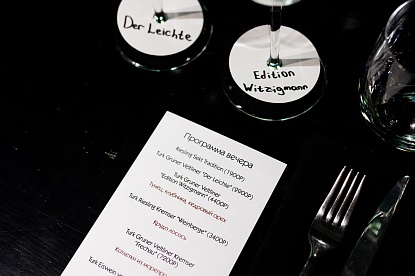 Der Leichte
Edition
Witzigmann
Программа вечера
Riesling Sekt Tradition (1900Р)
Turk Gruner Veltliner "Der Leichte" (1900Р)
Turk Gruner Veltliner
"Edition Witzigmann" (4400Р)
Тунец, клубника, кедровый орех
Turk Riesling Kremser "Weinberge" (3400Р)
Крудо лосось
Turk Gruner Veltliner Kremser
"Frechau" (7200Р)
Turk Eiswein